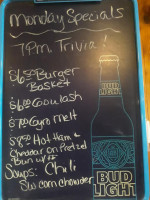 Monday Specials
7 P.M. Trivia!
Burger
Basket
Goulash
Gyro Melt
Hot Ham &
Cheddar on Pretzel
Bun w/ff
Soups: Chili
Sw corn chowder
BUD LIGHT
BUD
LIGHT